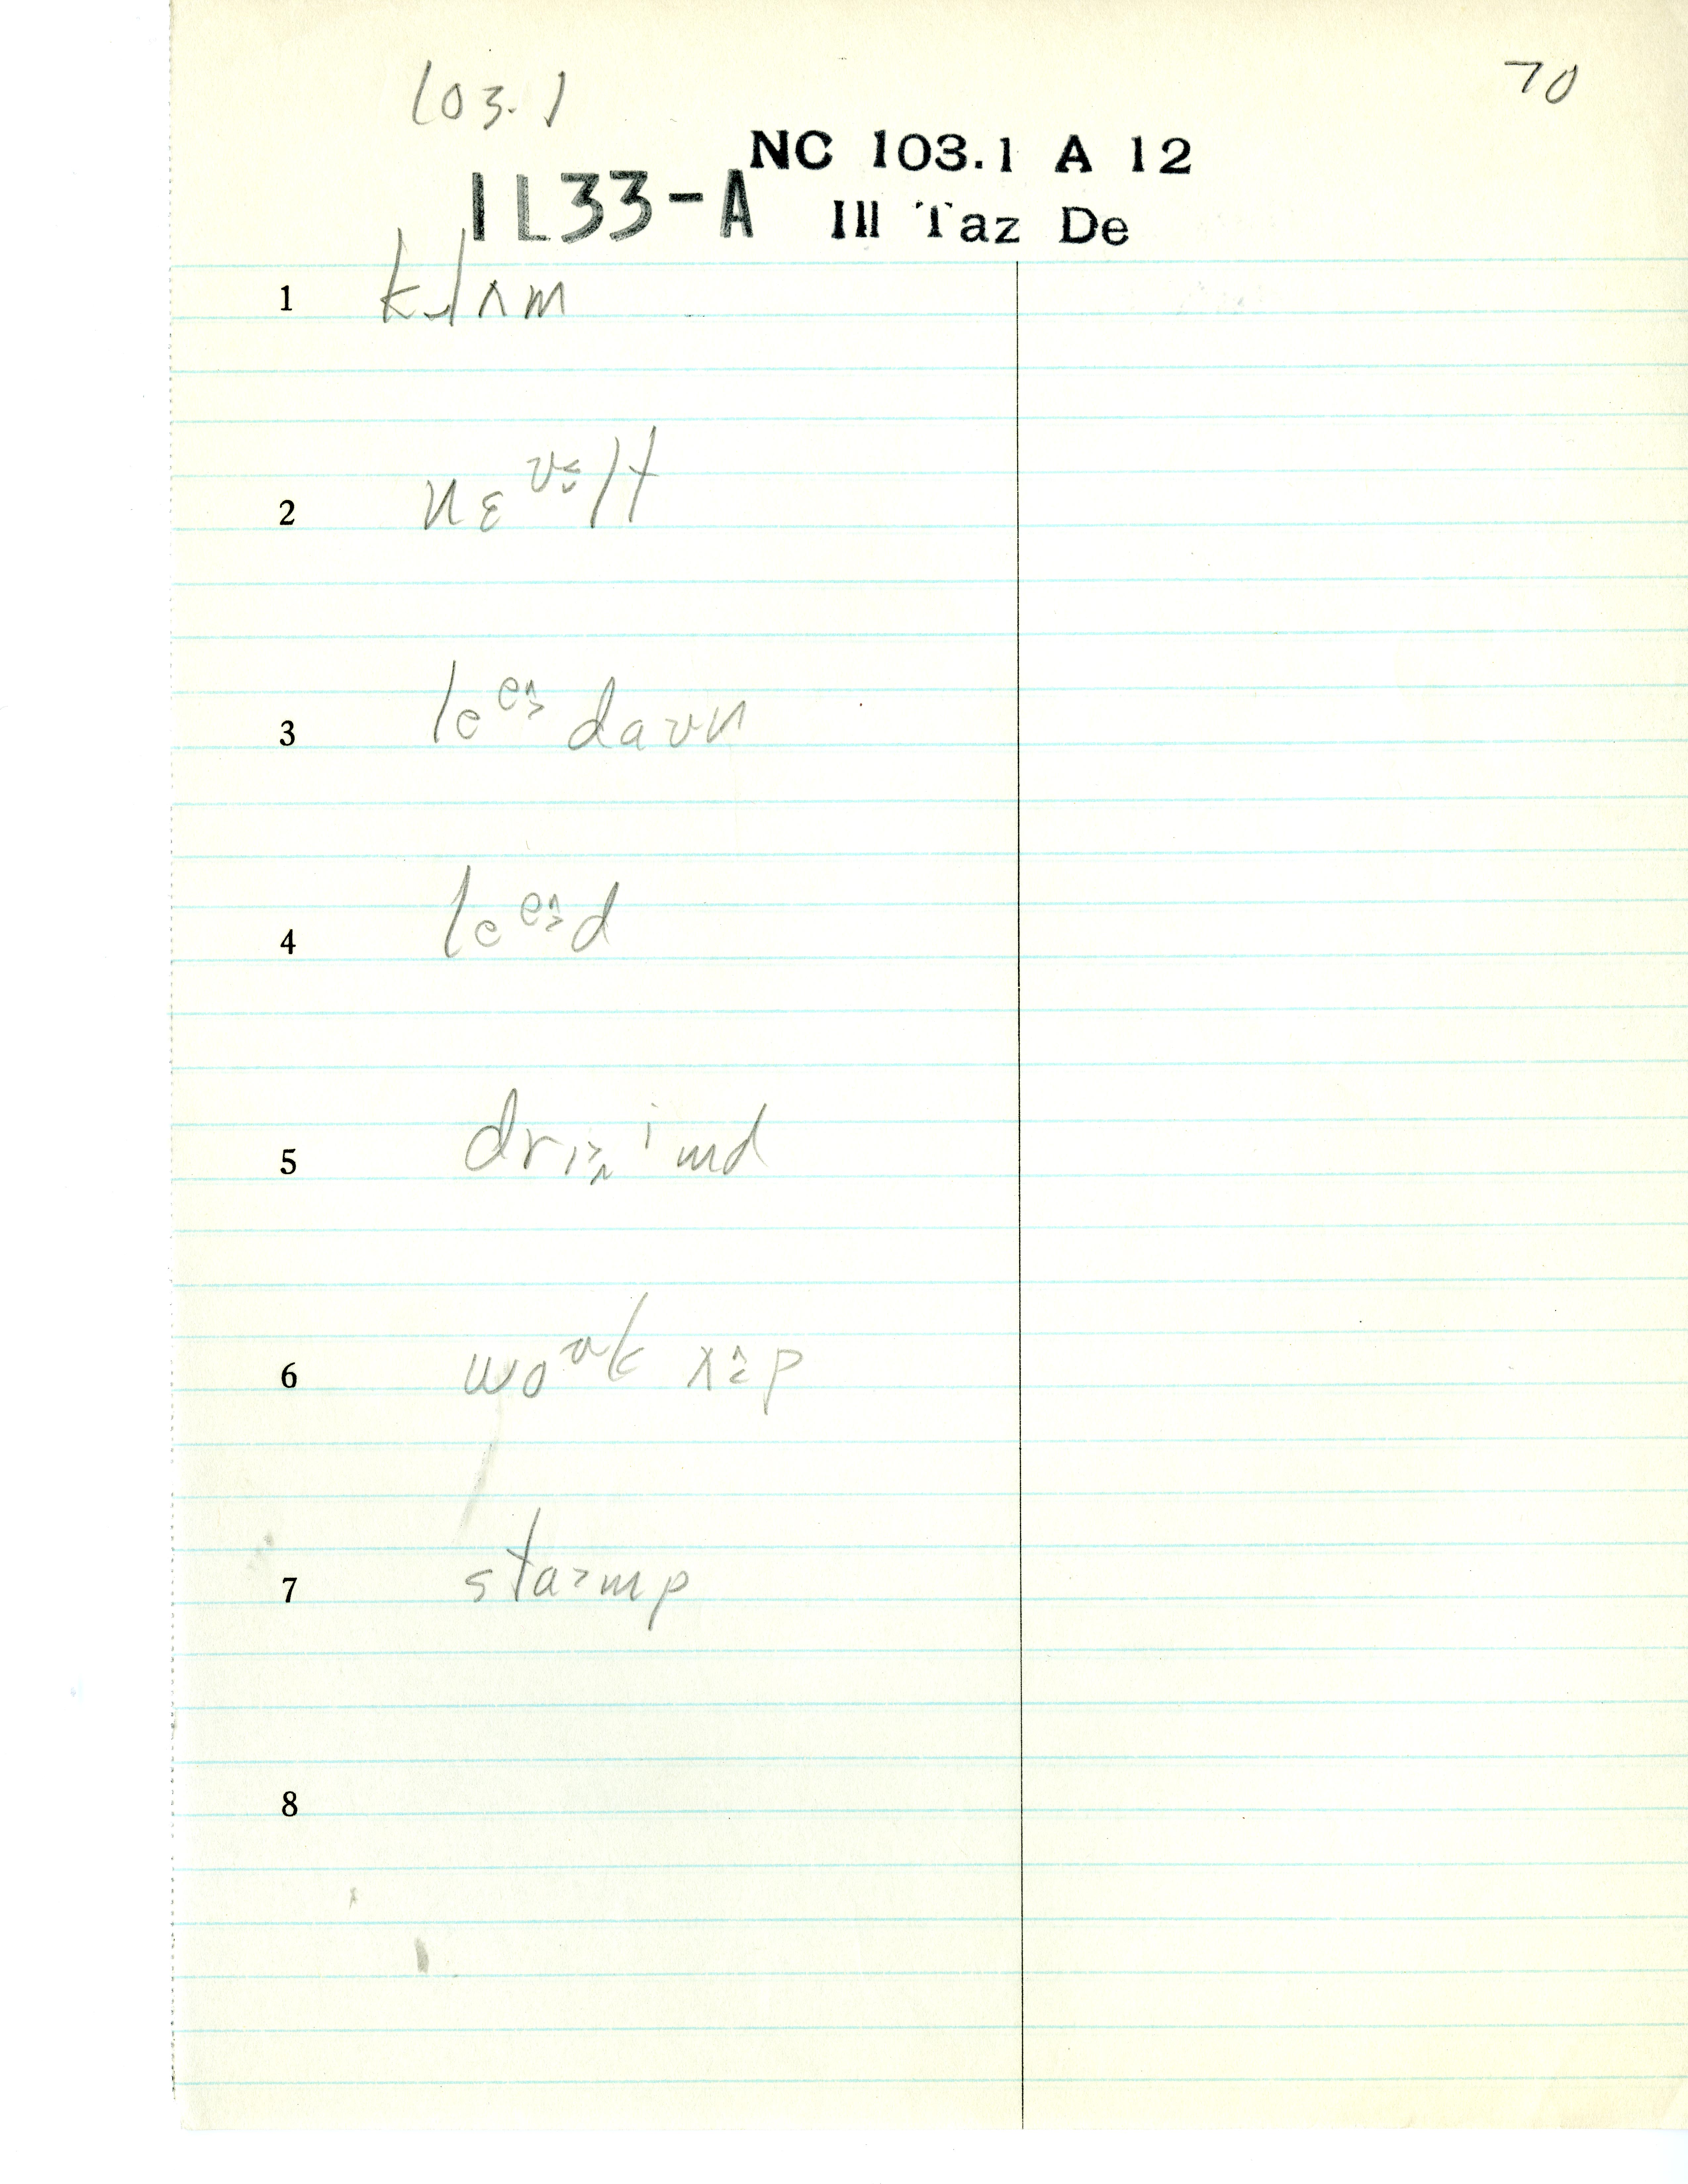 103.1
70
NC 103.1 A 12
IL33-A
Ill Taz De
1 klʌm
2 nɛʊ̆lt
3 leeˆ˃ daʊn
4 leeˆ˃d
5
6 woʊk ʌˆ˂p
7 sta˃mp
8